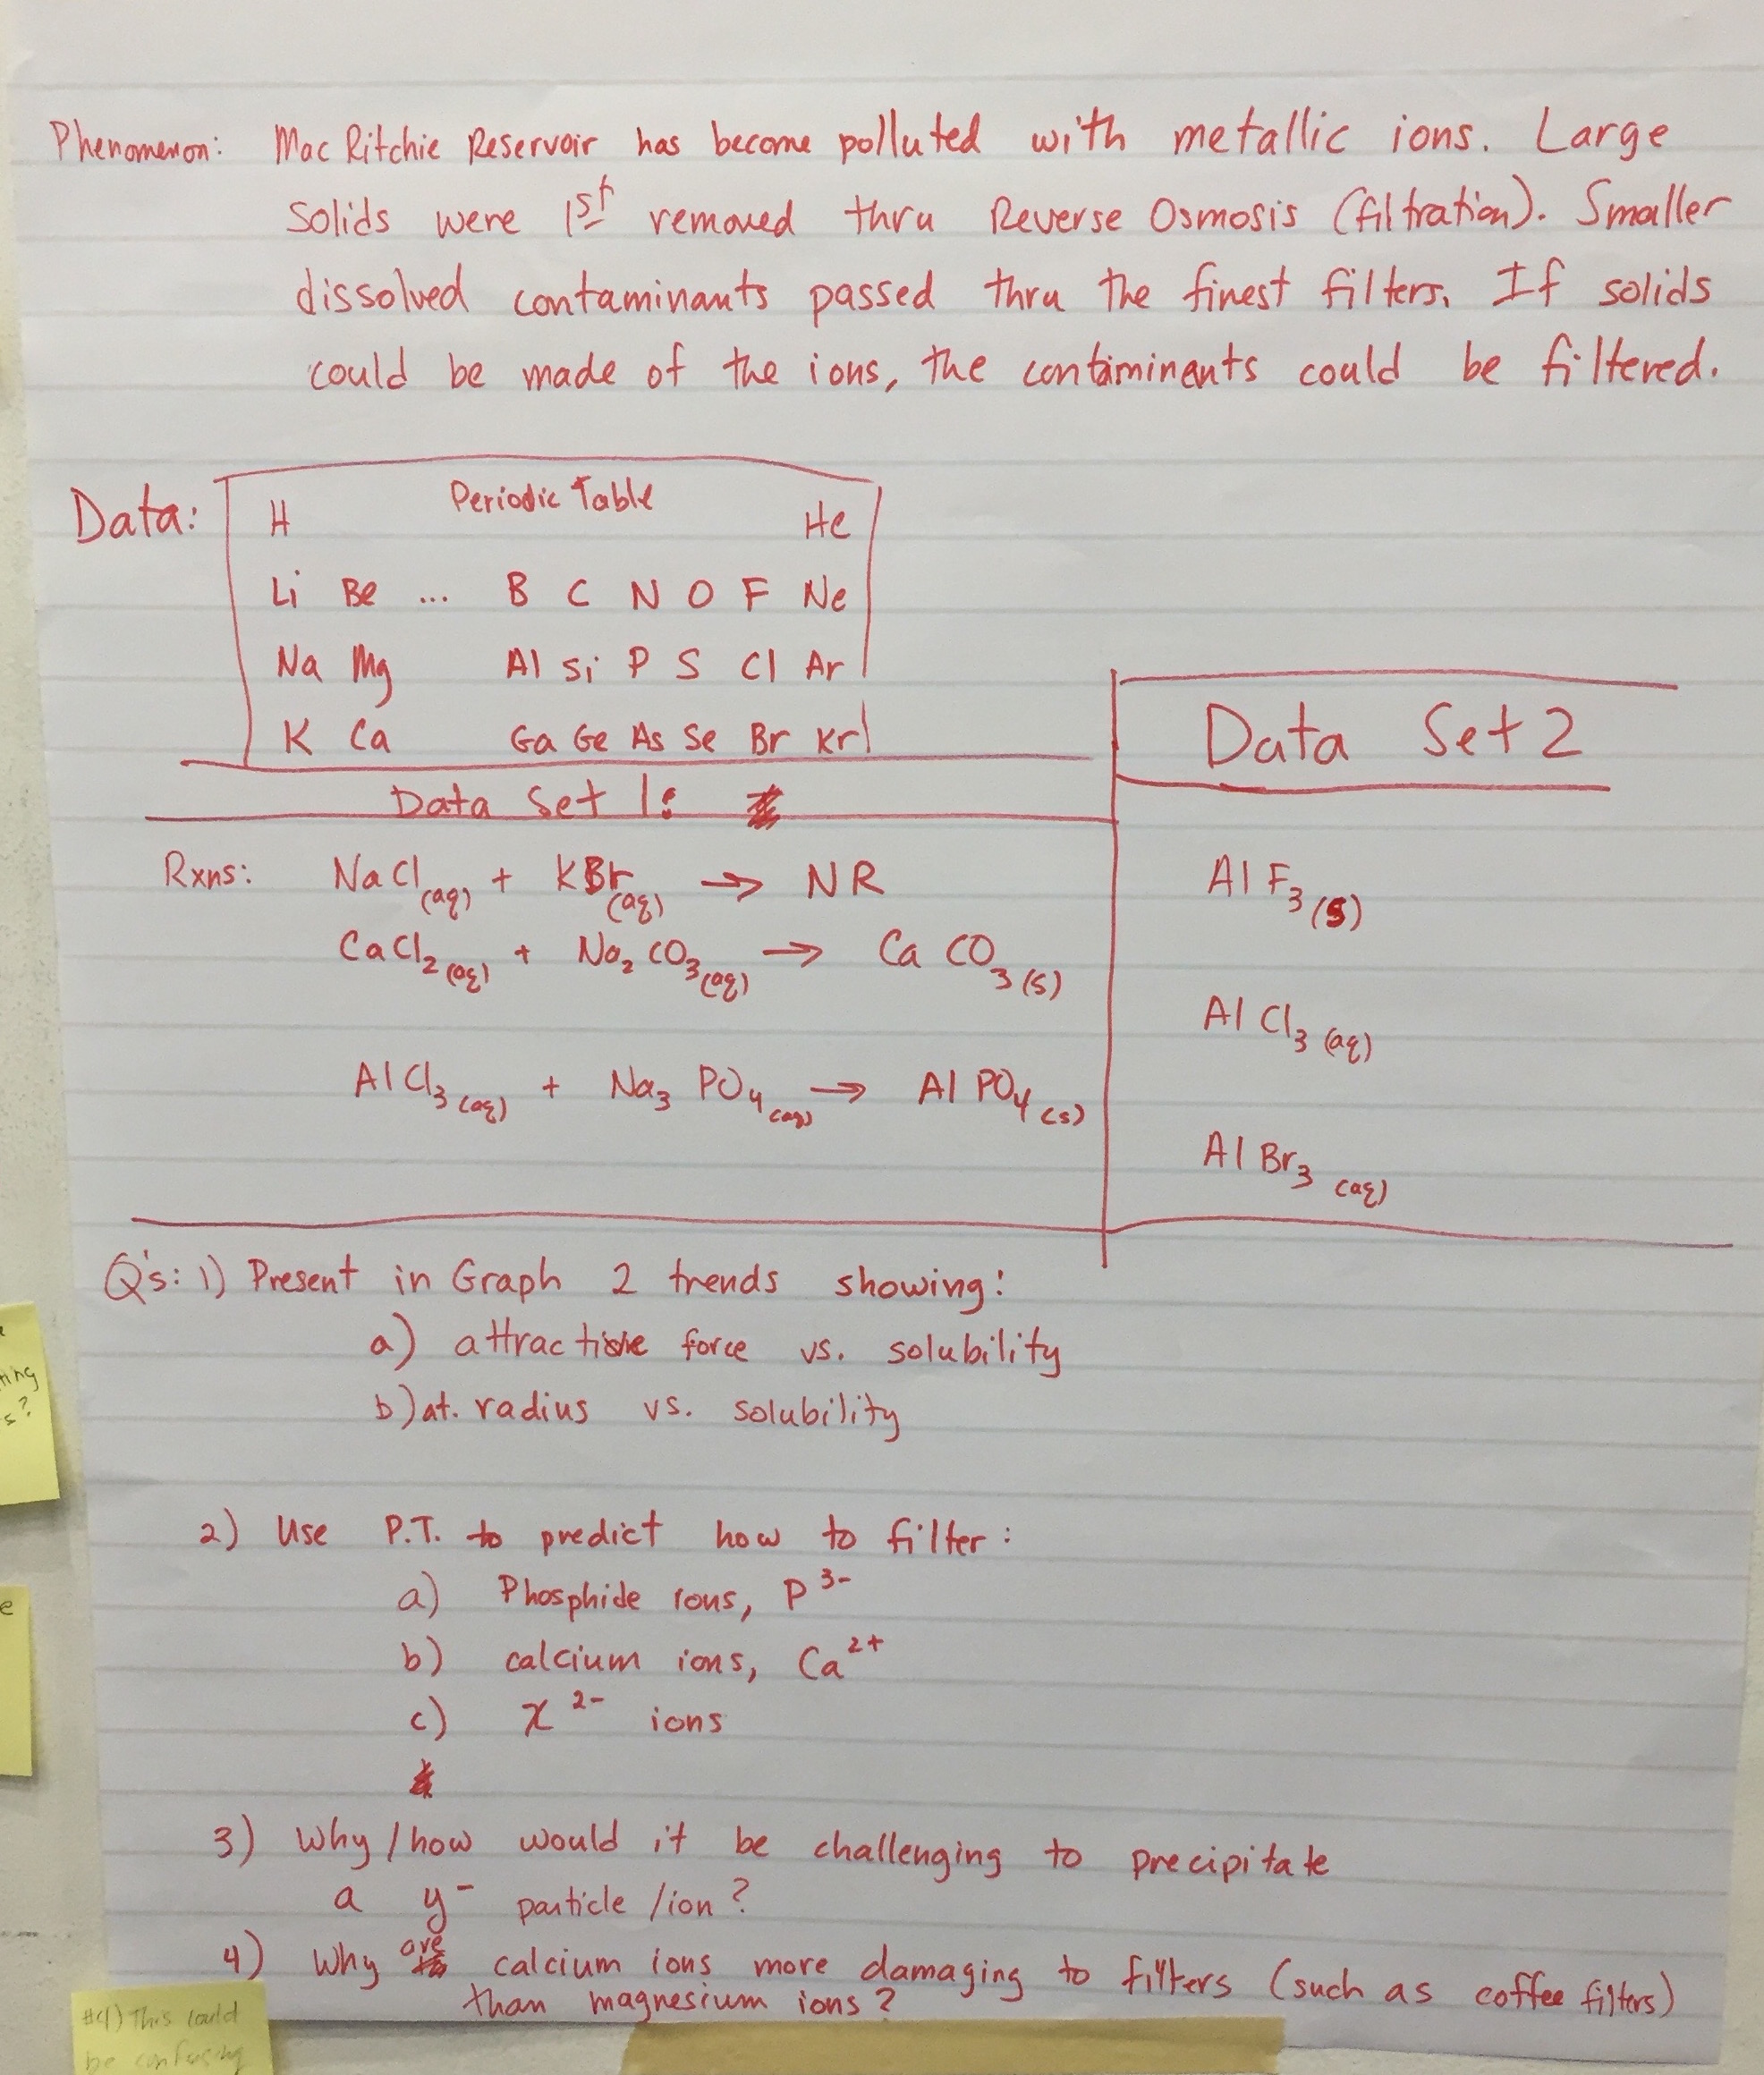 Phenomenon: MacRitchie Reservoir has become polluted with metallic ions. Large
solids were 1st removed thru Reverse Osmosis (filtration). Smaller
dissolved contaminants passed thru the finest filters. If solids
could be made of the ions, the contiminents could be filtered.
Data:
Periodic Table
H He
Li Be ... B C N O F Ne
Na Mg Al Si P S Cl Ar
K Ca Ga Ge As Se Br Kr
Data Set 1:
Rxns: NaCl(aq) + KBr(aq) → NR
CaCl2(aq) + Na2CO3(aq) → CaCO3(s)
AlCl3(aq) + Na3PO4(aq) → AlPO4(s)
Data Set 2
AlF3(s)
AlCl3(aq)
AlBr3(aq)
Q's: 1) Present in Graph 2 trends showing:
a) attractive force vs. solubility
b) at. radius vs. solubility
2) Use P.T. to predict how to filter:
a) Phosphide ions, P3-
b) calcium ions, Ca2+
c) X2- ions
3) Why/how would it be challenging to precipitate
a y- particle/ion?
4) Why are calcium ions more damaging to filters (such as coffee filters)
than magnesium ions?
#4) This could
be confusing